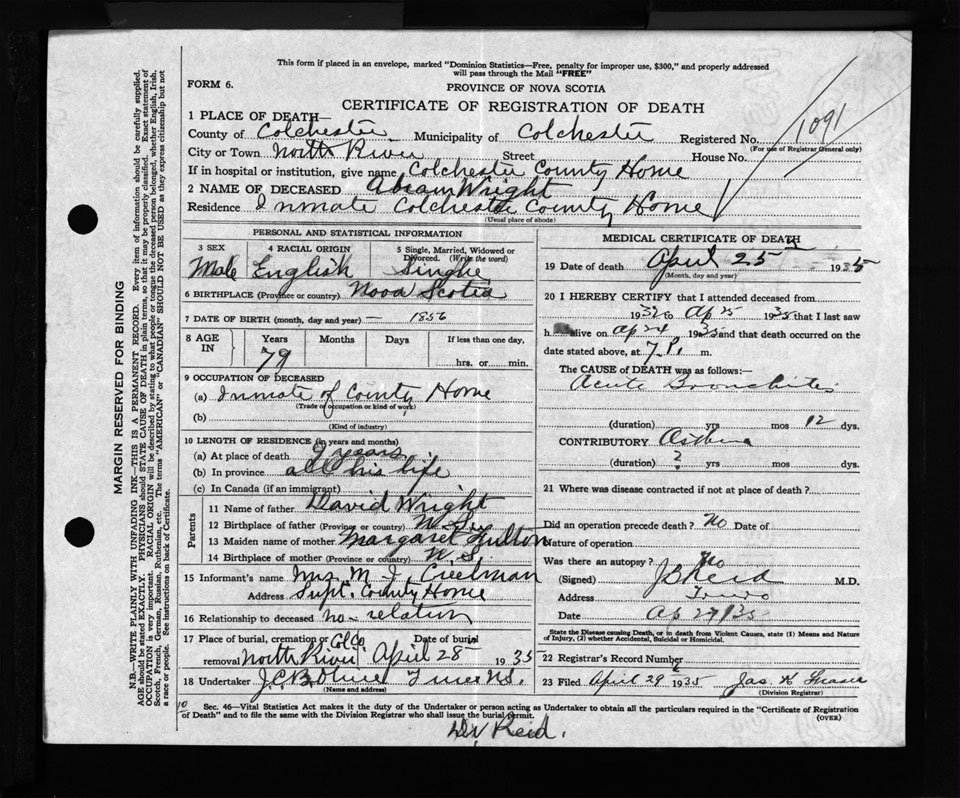 This form if placed in an envelope, marked "Dominion Statistics—Free, penalty for improper use, $300," and properly addressed
will pass through the Mail "FREE"
FORM 6.
PROVINCE OF NOVA SCOTIA
CERTIFICATE OF REGISTRATION OF DEATH
1 PLACE OF DEATH—
County of Colchester Municipality of Colchester Registered No. 1091
(For use of Registrar General only)
City or Town North River Street House No.
If in hospital or institution, give name Colchester County Home
2 NAME OF DECEASED Abram Wright
Residence Inmate Colchester County Home
(Usual place of abode)
PERSONAL AND STATISTICAL INFORMATION
3 SEX 4 RACIAL ORIGIN 5 Single, Married, Widowed or
Divorced. (Write the word)
Male English Single
6 BIRTHPLACE (Province or country) Nova Scotia
7 DATE OF BIRTH (month, day and year) — 1856
8 AGE IN Years Months Days If less than one day,
79 hrs. or min.
9 OCCUPATION OF DECEASED
(a) Inmate of County Home
(Trade of occupation or kind of work)
(b)
(Kind of industry)
10 LENGTH OF RESIDENCE (in years and months)
(a) At place of death 9 years
(b) In province all his life
(c) In Canada (if an immigrant)
Parents
11 Name of father David Wright
12 Birthplace of father (Province or country) N.S.
13 Maiden name of mother Margaret Fulton
14 Birthplace of mother (Province or country) N.S.
15 Informant's name Mrs. M. J. Creelman
Address Supt. County Home
16 Relationship to deceased no relation
17 Place of burial, cremation or Col Co Date of burial
removal North River April 28 1935
18 Undertaker J.C.B. Truro N.S.
(Name and address)
MEDICAL CERTIFICATE OF DEATH
19 Date of death April 25 1935
(Month, day and year)
20 I HEREBY CERTIFY that I attended deceased from
1932 to Ap 25 1935 that I last saw
h alive on ap 24 1935 and that death occurred on the
date stated above, at 7 P. m.
The CAUSE OF DEATH was as follows:—
Acute Bronchitis
(duration) yrs mos 12 dys.
CONTRIBUTORY Asthma
(duration) ? yrs mos dys.
21 Where was disease contracted if not at place of death?
Did an operation precede death? No Date of
Nature of operation
Was there an autopsy? No
(Signed) J B Reid M.D.
Address Truro
Date Ap 27/35
State the Disease causing Death, or in death from Violent Causes, state (1) Means and Nature
of Injury, (2) whether Accidental, Suicidal or Homicidal.
22 Registrar's Record Number
23 Filed April 29 1935 Jas. H
(Division Registrar)
Sec. 46—Vital Statistics Act makes it the duty of the Undertaker or person acting as Undertaker to obtain all the particulars required in the "Certificate of Registration
of Death" and to file the same with the Division Registrar who shall issue the burial permit.
(OVER)
Dr Reid.
MARGIN RESERVED FOR BINDING
N.B.—WRITE PLAINLY WITH UNFADING INK—THIS IS A PERMANENT RECORD. Every item of information should be carefully supplied.
AGE should be stated EXACTLY. PHYSICIANS should STATE CAUSE OF DEATH in plain terms, so that it may be properly classified. Exact statement of
OCCUPATION is very important. RACIAL ORIGIN will be described by stating to what people or tongue the deceased person belonged, whether English, Irish,
Scotch, French, German, Russian, Ruthenian, etc. The terms "AMERICAN" or "CANADIAN" SHOULD NOT BE USED as they express citizenship but not
a race or people. See instructions on back of Certificate.